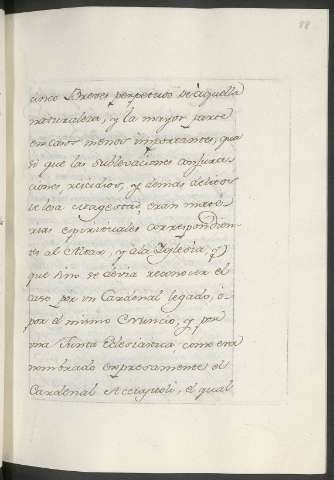 88
cinco Breves perpetuos de aquella
naturaleza, y la mayor parte
en casos menos importantes, que
si que las sublevaciones conjura-
ciones, regicidios, y demás delitos
de lesa Magestad, eran mate-
rias espirituales correspondien-
tes al Altar, y a la Iglesia, y
que sino se devia reconocer el
caso por un Cardenal legado, ó
por el mismo Nuncio, y por
una Junta Eclesiastica, como era
nombrado expresamente el
Cardenal Acciajuoli, el qual